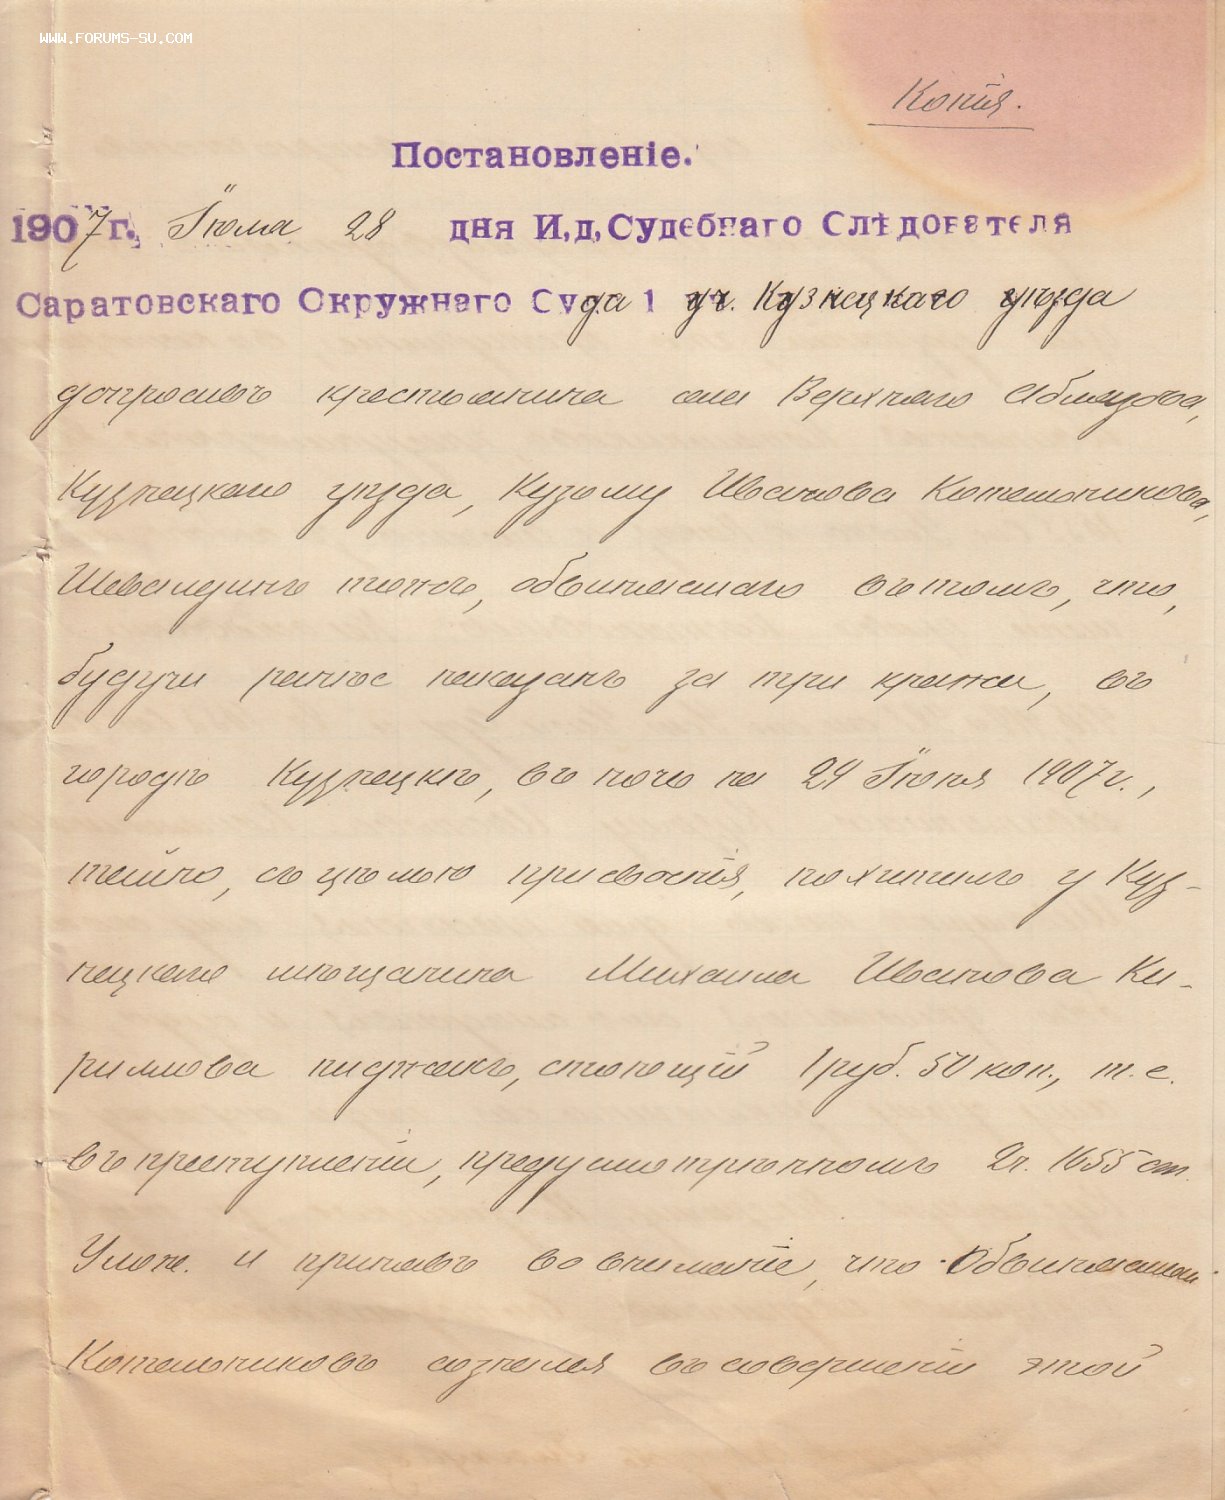 WWW.FORUMS-SU.COM
Копія.
Постановленіе.
1907г. Іюля 28 дня И.д. Судебнаго Слѣдователя
Саратовскаго Окружнаго Суда 1 уч. Кузнецкаго уѣзда
допросивъ крестьянина села Верхняго Аблязова,
Кузнецкаго уѣзда, Кузьму Иванова Котельникова,
Шевалдинъ тожъ, обвиняемаго въ томъ, что,
будучи ранѣе наказанъ за три кражи, въ
городѣ Кузнецкѣ, въ ночь на 24 Іюня 1907г.,
тайно, съ цѣлью присвоенія, похитилъ у Куз-
нецкаго мѣщанина Михаила Иванова Ки-
риллова пиджакъ, стоющій 1 руб. 50 коп., т.е.
въ преступленіи, предусмотрѣнномъ 2ч. 1655 ст.
Улож. и принявъ во вниманіе, что Обвиняемый
Котельниковъ сознался въ совершеніи этой